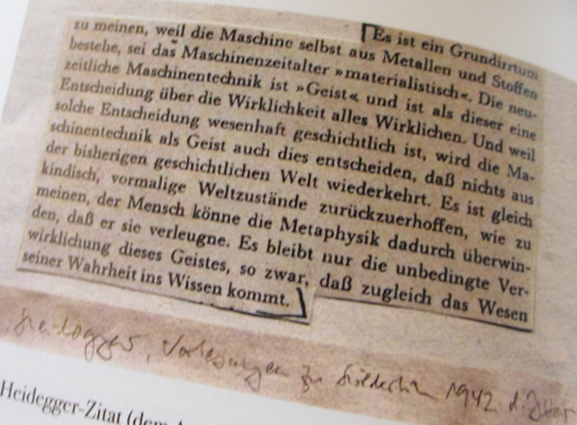 [Es ist ein Grundirrtum
zu meinen, weil die Maschine selbst aus Metallen und Stoffen
bestehe, sei das Maschinenzeitalter »materialistisch«. Die neu-
zeitliche Maschinentechnik ist »Geist« und ist als dieser eine
Entscheidung über die Wirklichkeit alles Wirklichen. Und weil
solche Entscheidung wesenhaft geschichtlich ist, wird die Ma-
schinentechnik als Geist auch dies entscheiden, daß nichts aus
der bisherigen geschichtlichen Welt wiederkehrt. Es ist gleich
kindisch, vormalige Weltzustände zurückzuerhoffen, wie zu
meinen, der Mensch könne die Metaphysik dadurch überwin-
den, daß er sie verleugne. Es bleibt nur die unbedingte Ver-
wirklichung dieses Geistes, so zwar, daß zugleich das Wesen
seiner Wahrheit ins Wissen kommt.]
Heidegger, Vorlesungen zu Hölderlin 1942
Heidegger-Zitat